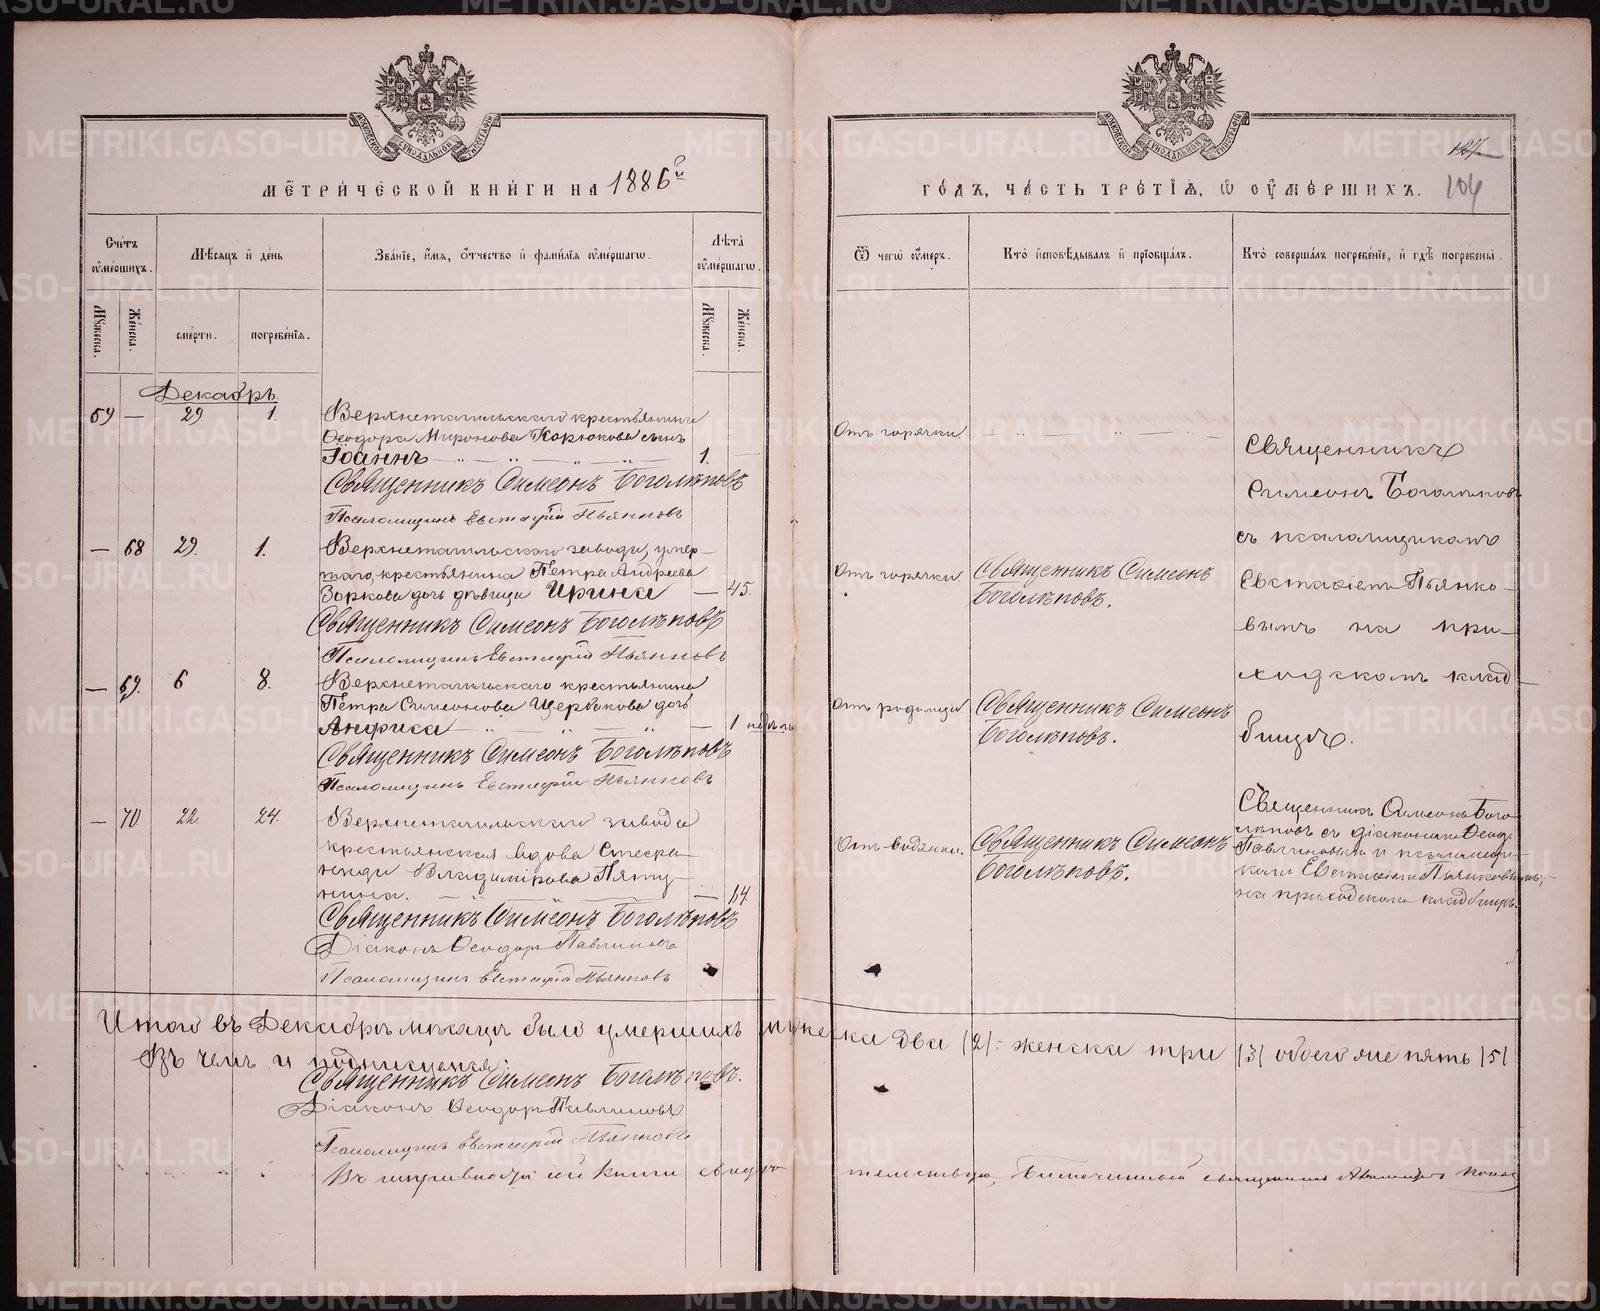 МЕТРИЧЕСКОЙ КНИГИ НА 1886й
Счетъ умершихъ.
Мѣсяцъ и день
Званіе, имя, отчество и фамилія умершагѡ.
Лѣта умершагѡ.
Мужеска.
Женска.
смерти.
погребенія.
Мужеска.
Женска.
Декабрь.
59 — 29 1.
Верхнетагильскаго крестьянина
Ѳеодора Миронова Карюкова сынъ
Іоаннъ 1.
Священникъ Симеонъ Боголѣповъ
Псаломщикъ Евстафій Пьянковъ
— 68 29. 1.
Верхнетагильскаго завода, умер-
шаго, крестьянина Петра Андреева
Зоркова дочь дѣвица Ирина — 45.
Священникъ Симеонъ Боголѣповъ
Псаломщикъ Евстафій Пьянковъ
— 69. 6 8.
Верхнетагильскаго крестьянина
Петра Симеонова Щербакова дочь
Анфиса — 1 недѣли
Священникъ Симеонъ Боголѣповъ
Псаломщикъ Евстафій Пьянковъ
— 70. 22. 24.
Верхнетагильскаго завода
крестьянская вдова
Владимірова
— 64
Священникъ Симеонъ Боголѣповъ
Діаконъ Ѳеодоръ Павлиновъ
Псаломщикъ Евстафій Пьянковъ
Итого въ Декабрѣ мѣсяцѣ было умершихъ мужеска два /2/ - женска три /3/ обоего же пять /5/
Въ чемъ и подписуемся:
Священникъ Симеонъ Боголѣповъ.
Діаконъ Ѳеодоръ Павлиновъ
Псаломщикъ Евстафій Пьянковъ
книги свидѣ-
тельствую, Благочинный священникъ Поповъ
ГОДЪ, ЧАСТЬ ТРЕТІѦ, Ѡ ОУМЕРШИХЪ.
127
104
Ѿ чегѡ умеръ.
Кто исповѣдывалъ и пріобщалъ.
Кто совершалъ погребеніе, и гдѣ погребены.
Отъ горячки.
Священникъ
Симеонъ Боголѣповъ
съ псаломщикомъ
Евстафіемъ Пьянко-
вымъ на при-
ходскомъ клад-
бищѣ.
Отъ горячки.
Священникъ Симеонъ
Боголѣповъ.
Отъ родимца.
Священникъ Симеонъ
Боголѣповъ.
Отъ водянки.
Священникъ Симеонъ
Боголѣповъ.
Священникъ Симеонъ Бого-
лѣповъ съ діакономъ Ѳеод.
Павлиновымъ и псаломщи-
комъ Евстафіемъ Пьянковымъ,
на приходскомъ кладбищѣ.
METRIKI.GASO-URAL.RU